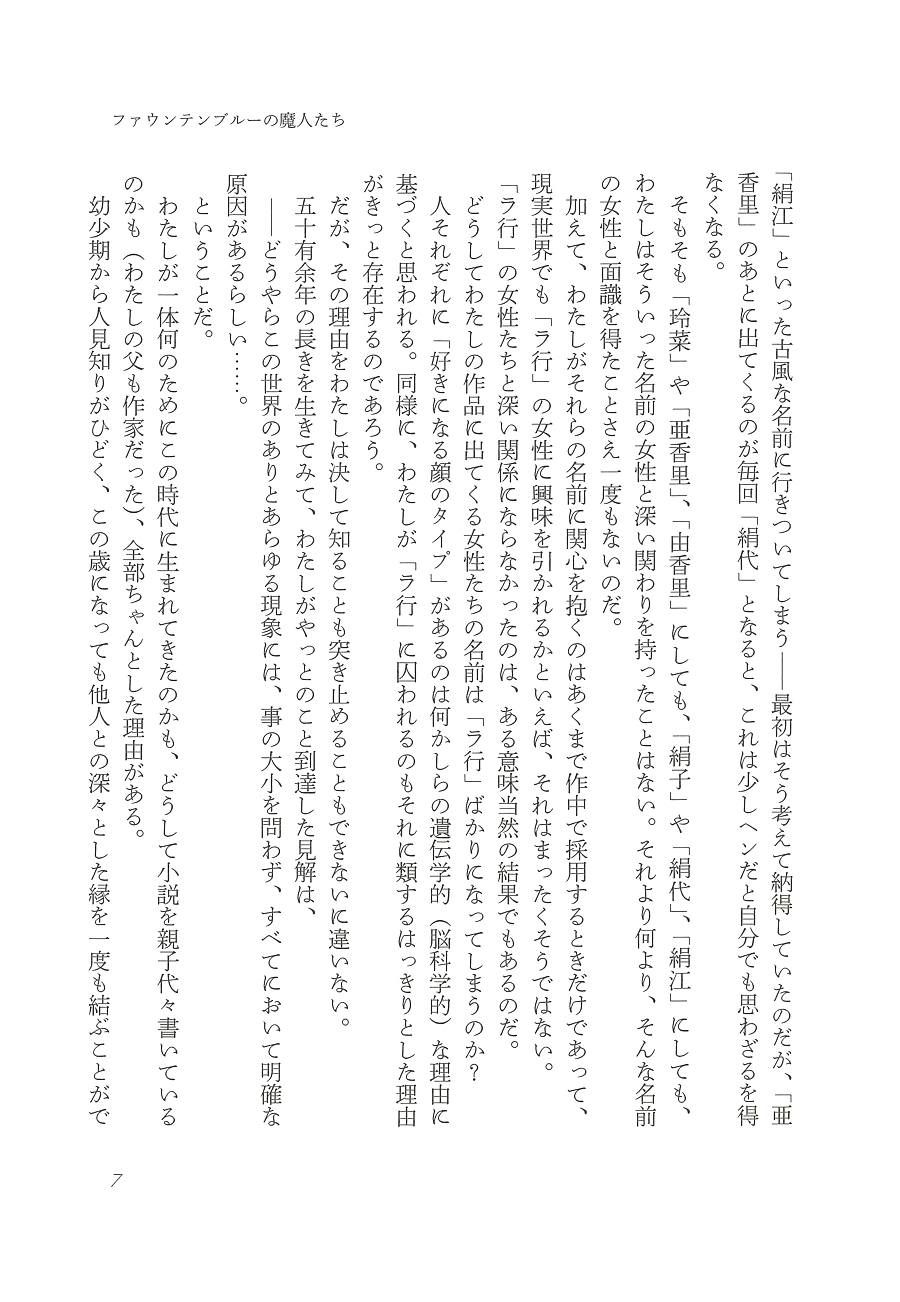 ファウンテンブルーの魔人たち
「絹江」といった古風な名前に行きついてしまう――最初はそう考えて納得していたのだが、「亜
香里」のあとに出てくるのが毎回「絹代」となると、これは少しヘンだと自分でも思わざるを得
なくなる。
そもそも「玲菜」や「亜香里」、「由香里」にしても、「絹子」や「絹代」、「絹江」にしても、
わたしはそういった名前の女性と深い関わりを持ったことはない。それより何より、そんな名前
の女性と面識を得たことさえ一度もないのだ。
加えて、わたしがそれらの名前に関心を抱くのはあくまで作中で採用するときだけであって、
現実世界でも「ラ行」の女性に興味を引かれるかといえば、それはまったくそうではない。
「ラ行」の女性たちと深い関係にならなかったのは、ある意味当然の結果でもあるのだ。
どうしてわたしの作品に出てくる女性たちの名前は「ラ行」ばかりになってしまうのか？
人それぞれに「好きになる顔のタイプ」があるのは何かしらの遺伝学的（脳科学的）な理由に
基づくと思われる。同様に、わたしが「ラ行」に囚われるのもそれに類するはっきりとした理由
がきっと存在するのであろう。
だが、その理由をわたしは決して知ることも突き止めることもできないに違いない。
五十有余年の長きを生きてみて、わたしがやっとのこと到達した見解は、
――どうやらこの世界のありとあらゆる現象には、事の大小を問わず、すべてにおいて明確な
原因があるらしい……。
ということだ。
わたしが一体何のためにこの時代に生まれてきたのかも、どうして小説を親子代々書いている
のかも（わたしの父も作家だった）、全部ちゃんとした理由がある。
幼少期から人見知りがひどく、この歳になっても他人との深々とした縁を一度も結ぶことがで
7